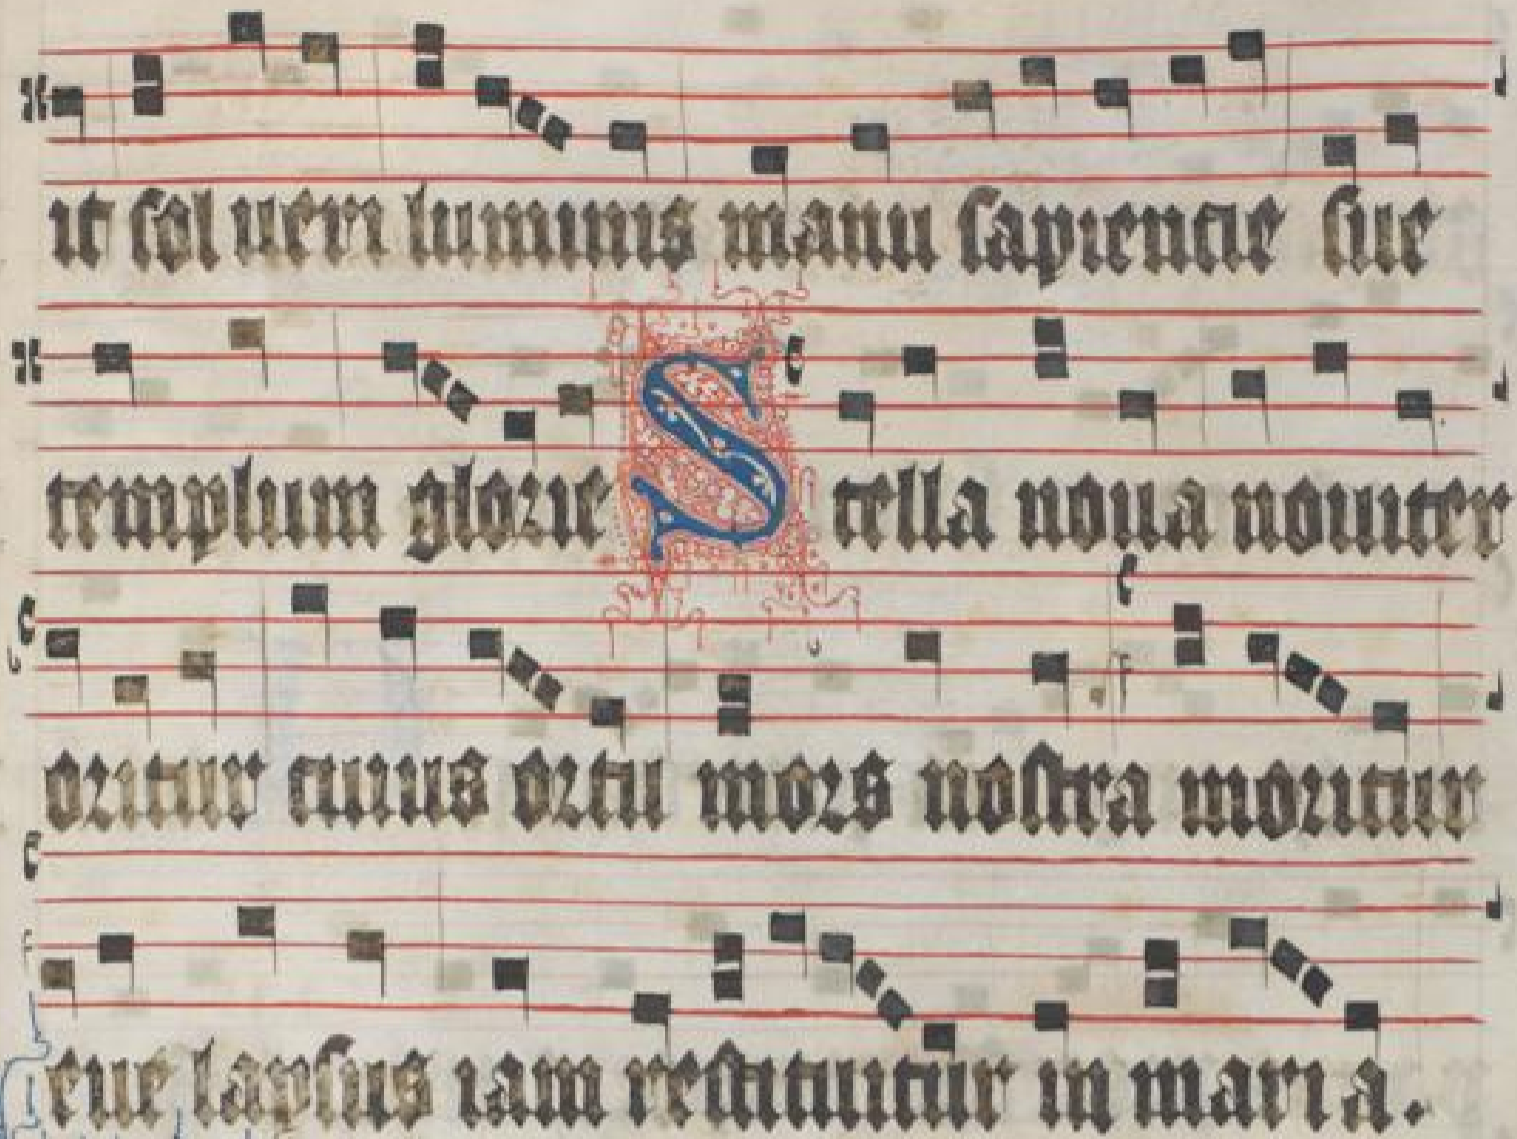 ut sol ueri luminis manu sapiencie sue
templum glorie Stella noua nouiter
oritur cuius ortu mors nostra moritur
eue lapsus iam restituitur in maria.